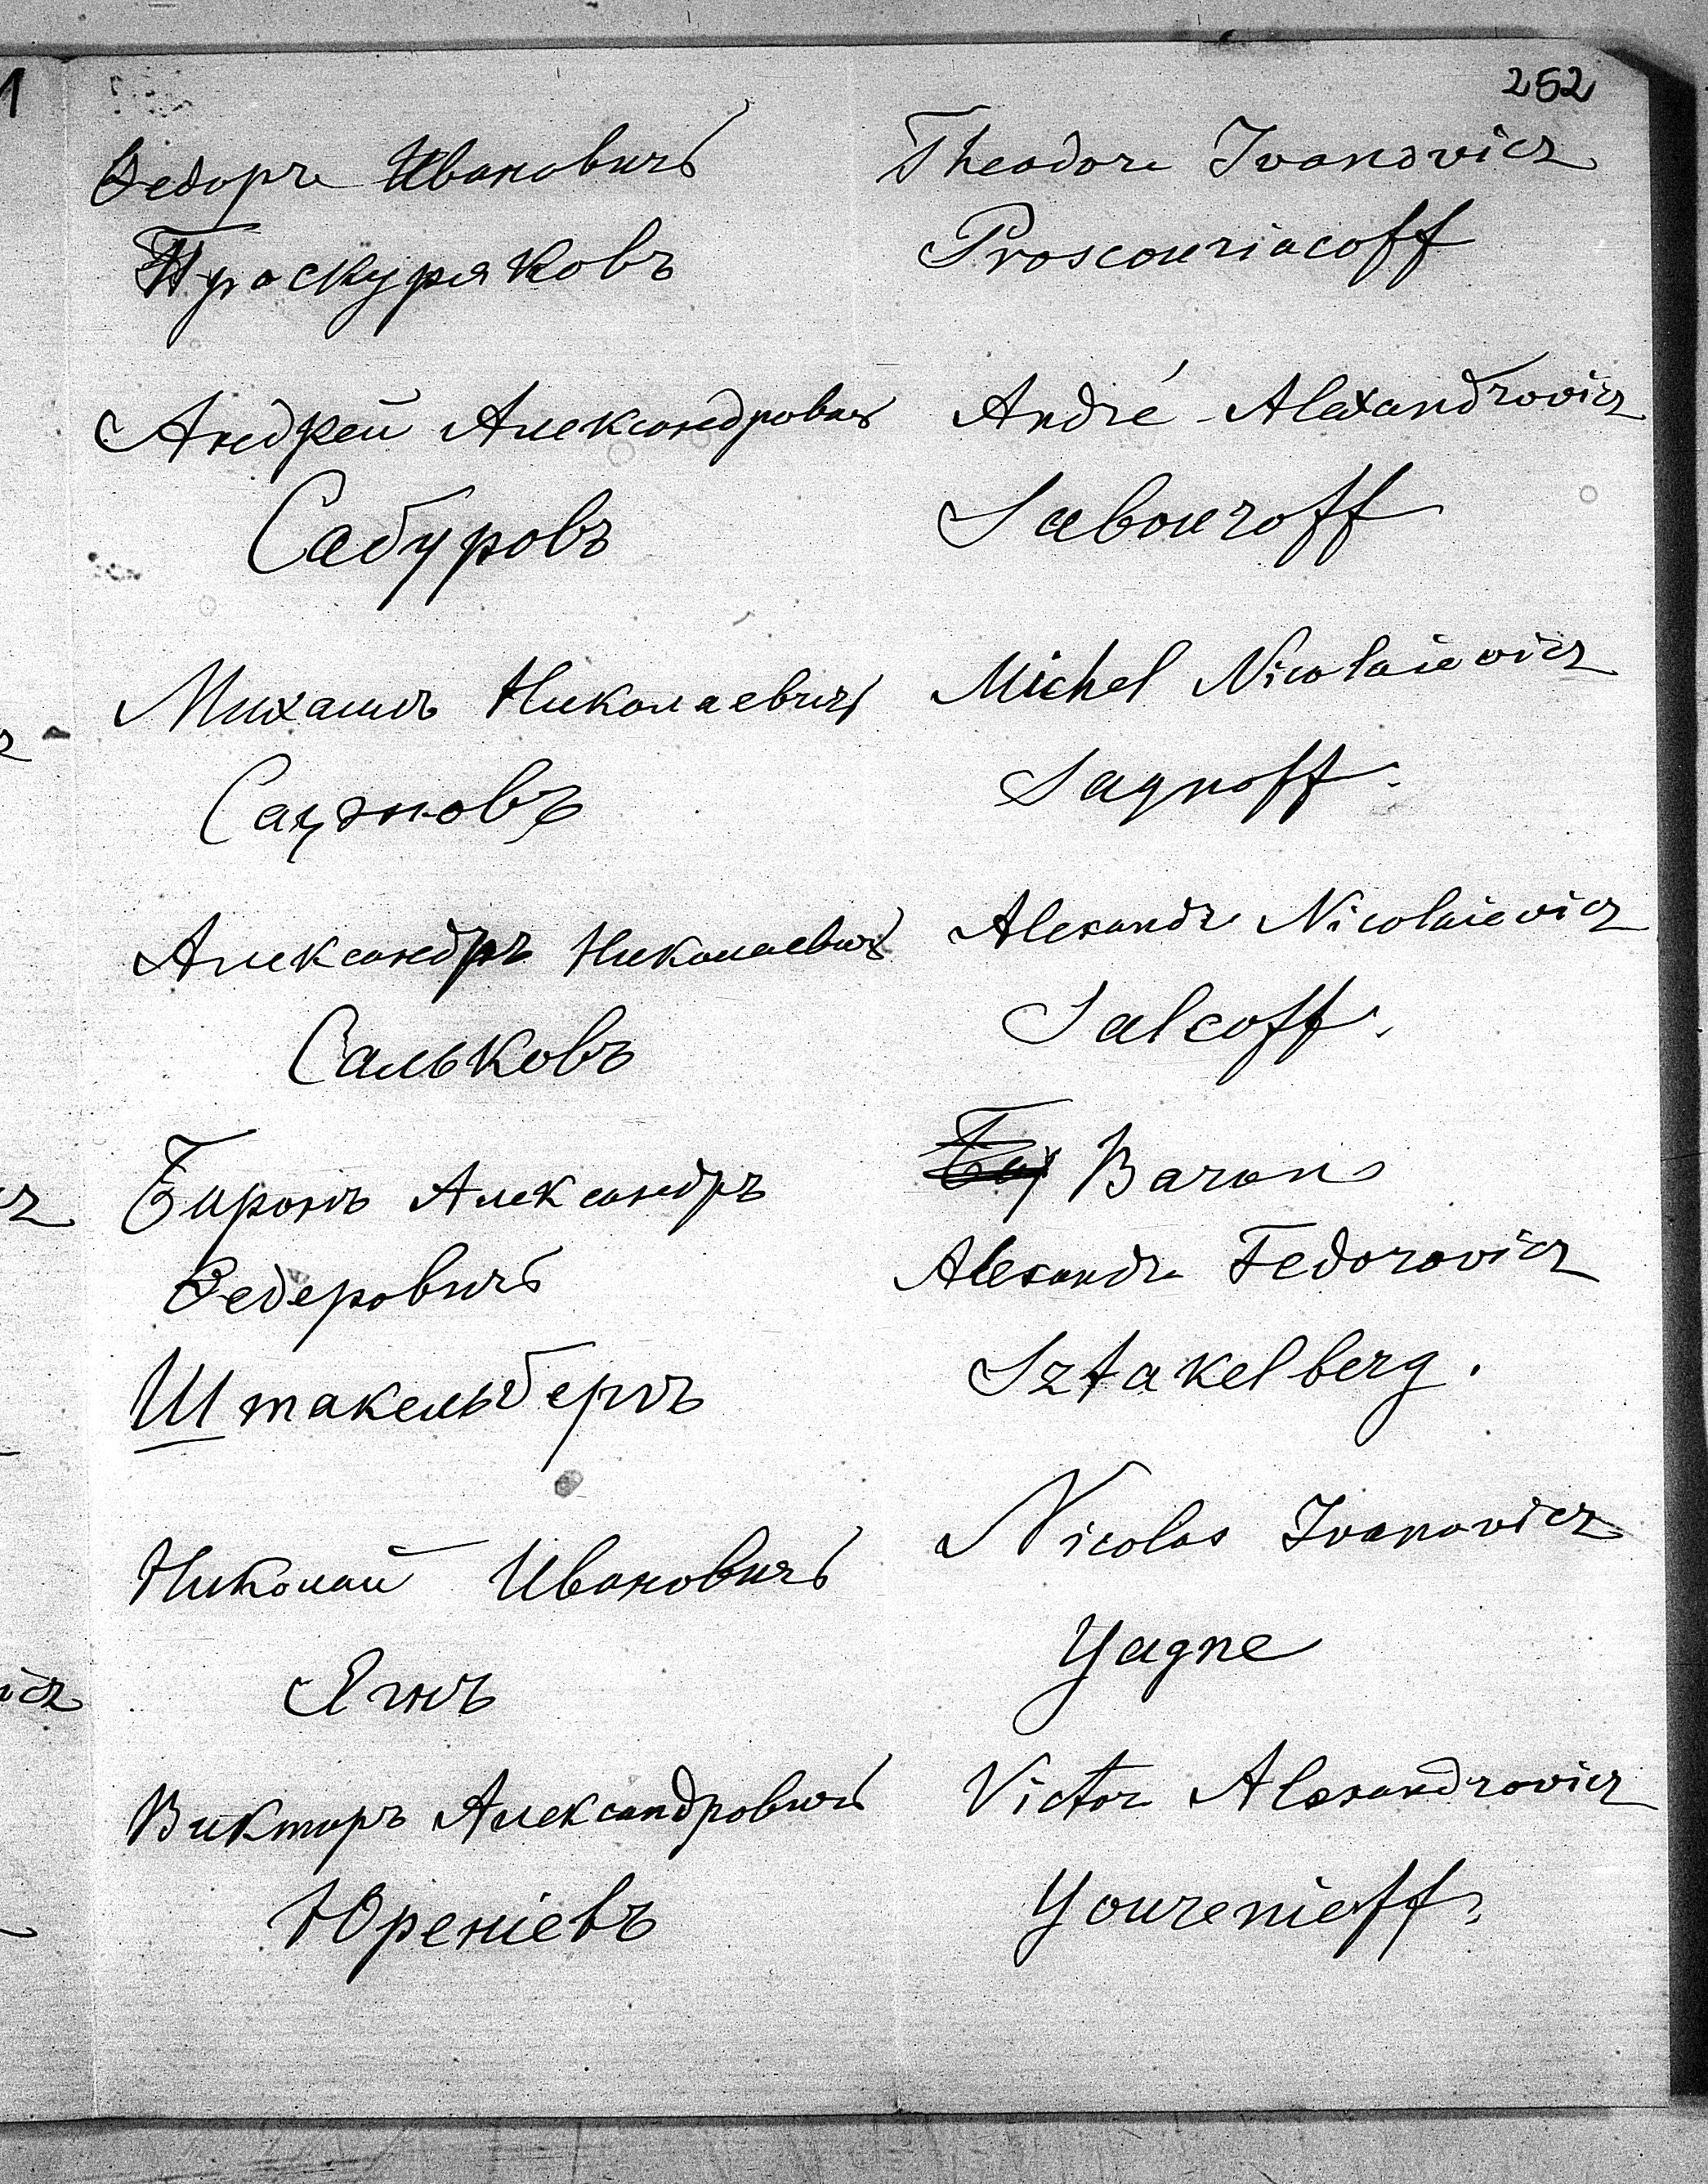 252
Федоръ Ивановичъ Theodore Ivanovicz
Проскуряковъ Proscouriacoff
Андрей Александровичъ André Alexandrovicz
Сабуровъ Sabouroff
Михаилъ Николаевичъ Michel Nicolaievicz
Sagnoff.
Александръ Николаевичъ Alexandre Nicolaievicz
Сальковъ Salcoff.
Баронъ Александръ Baron
Федоровичъ Alexandre Fedorovicz
Штакельбергъ Sztakelberg.
Николай Ивановичъ Nicolas Ivanovicz
Ягнъ Yagne
Викторъ Александровичъ Victor Alexandrovicz
Юреніевъ Yourenieff.